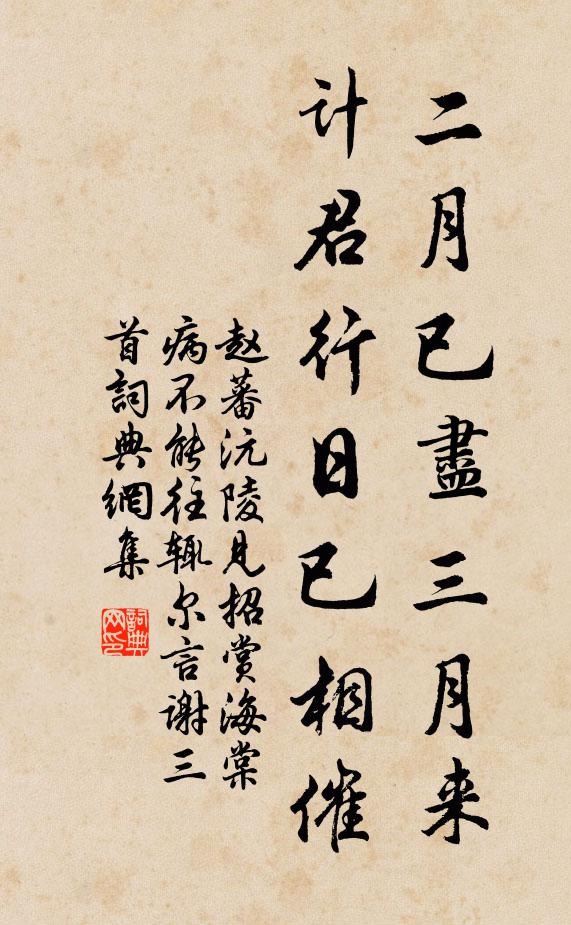 二月已盡三月来
计君行日已相催
赵蕃沅陵見招赏海棠
病不能往辄尔言谢三
首詞典網集
詞典